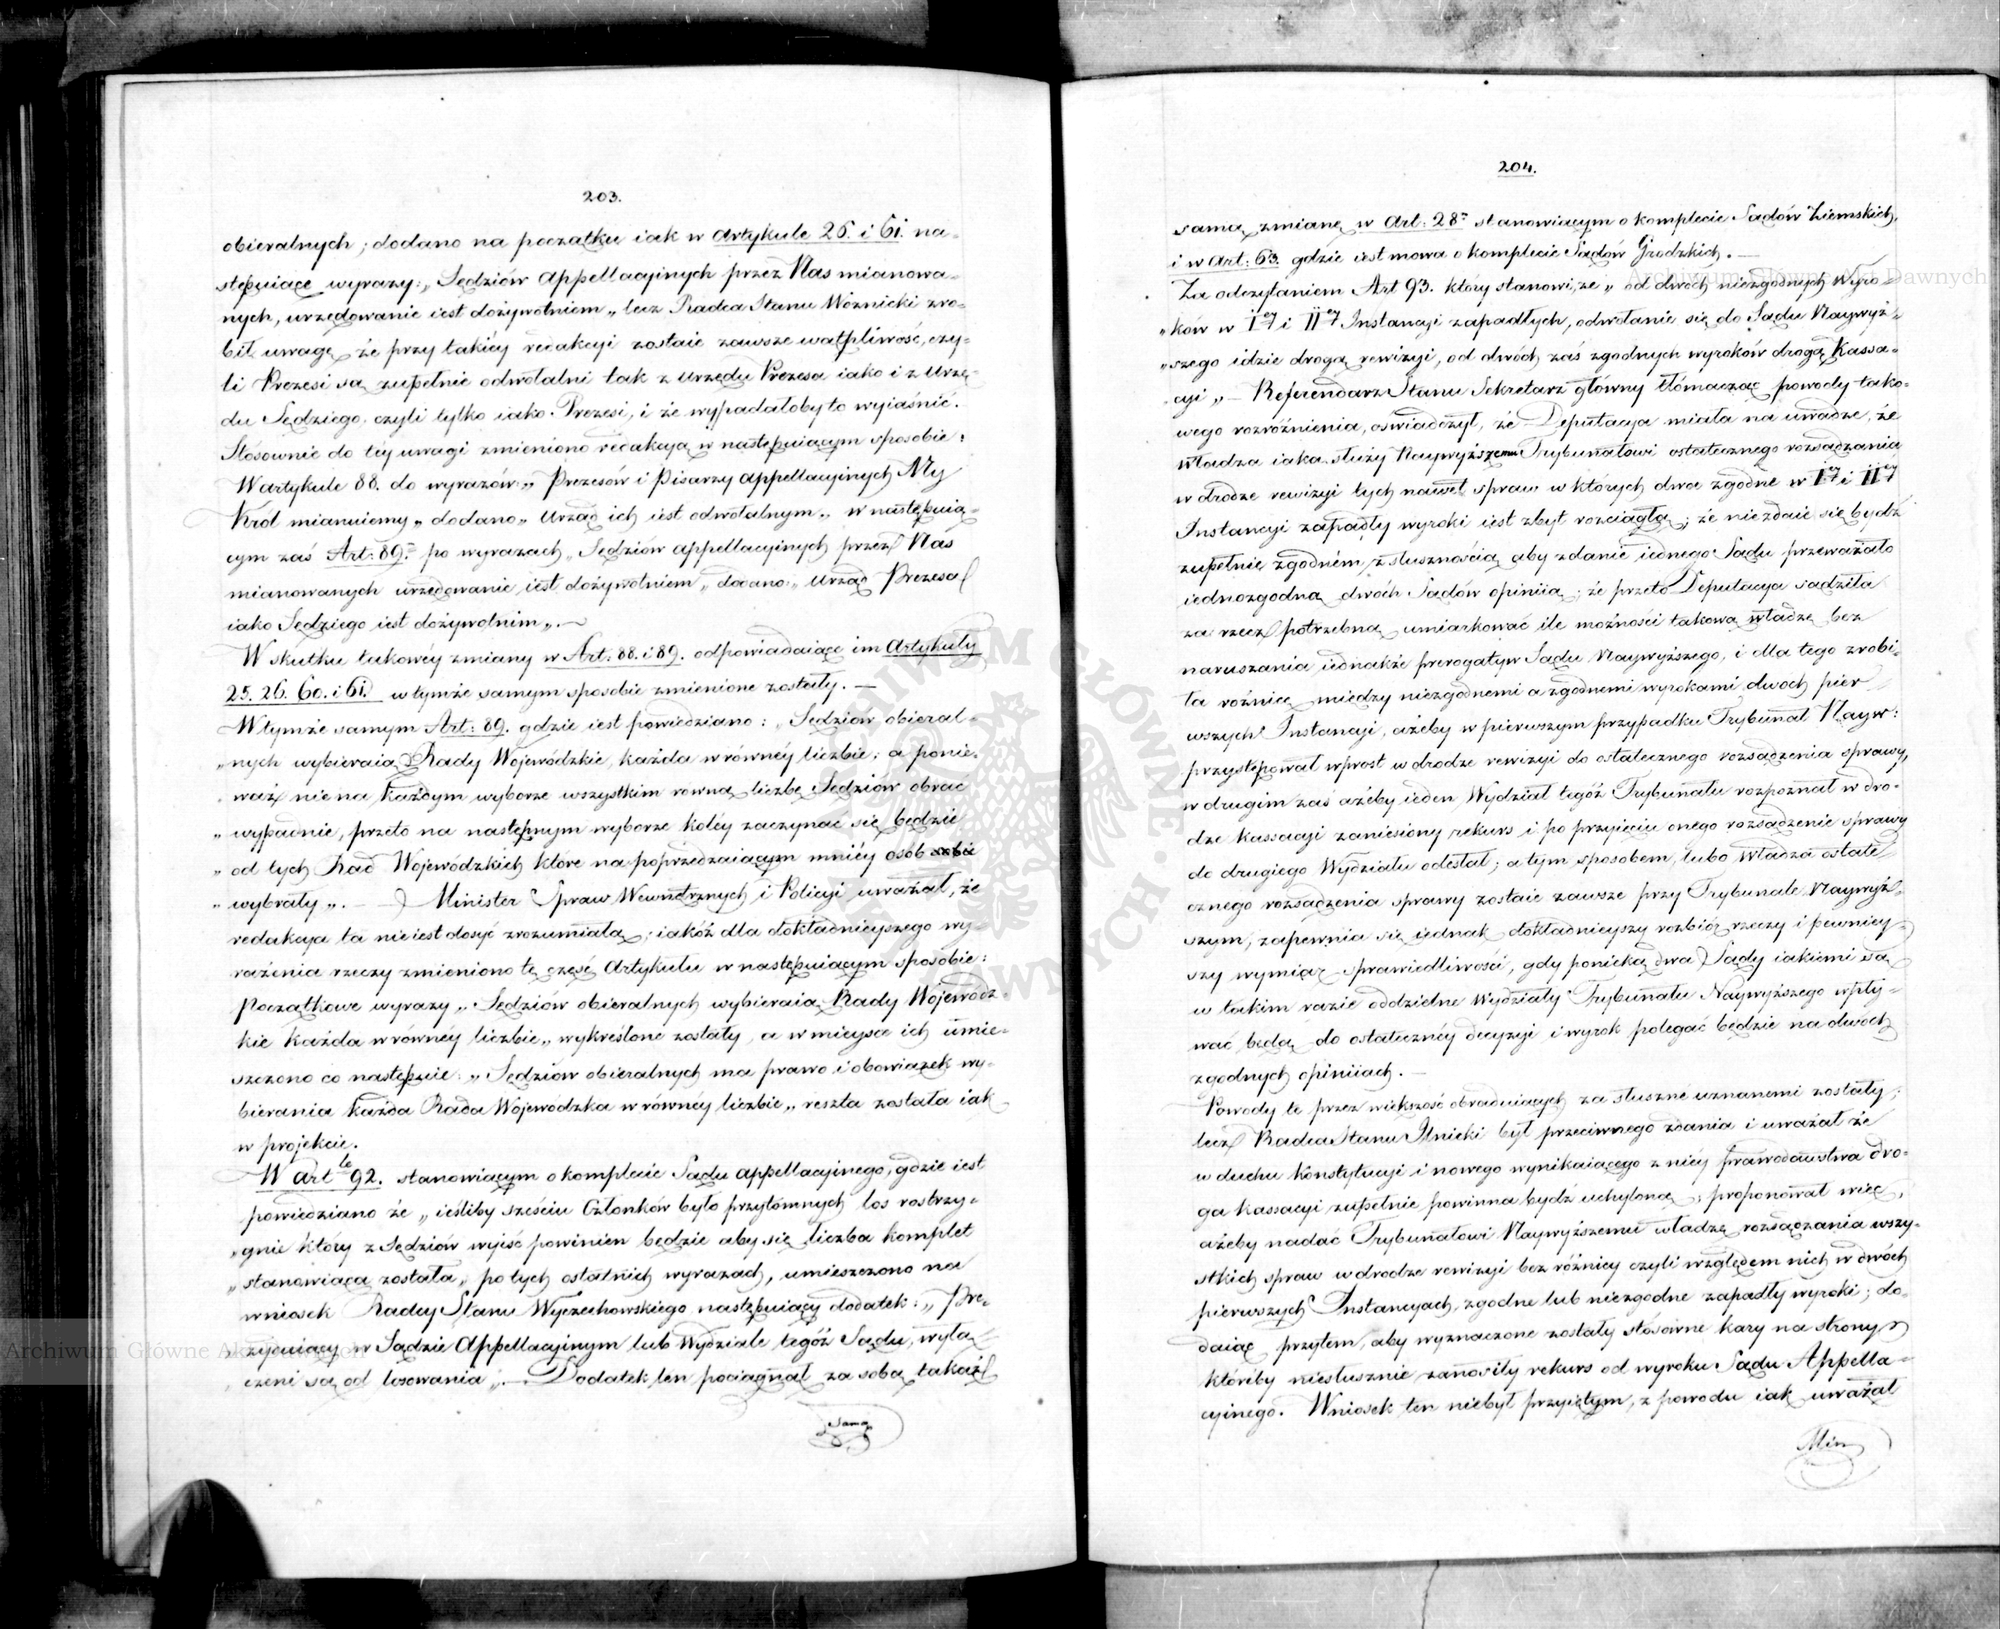 203.
obieralnych; dodano na początku iak w Artykule 26. i 61. na-
stępuiące wyrazy: „Sędziów Appellacyinych przez Nas mianowa-
nych, urzędowanie iest dożywotniem„ lecz Radca Stanu Woźnicki zro-
bił uwagę że przy takiéy redakcyi zostaie zawsze wątpliwość, czy-
li Prezesi są zupełnie odwołalni tak z Urzędu Prezesa iako i z Urzę-
du Sędziego, czyli tylko iako Prezesi, i że wypadałoby to wyiaśnić.
Stósownie do téy uwagi zmieniono redakcyą w następuiącym sposobie:
W artykule 88. do wyrazów: „Prezesów i Pisarzy appellacyinych My
Król mianuiemy„ dodano „Urząd ich iest odwołalnym„ w następuią-
cym zaś Art: 89. po wyrazach „Sędziów appellacyinych przez Nas
mianowanych urzędowanie iest dożywotniem„ dodano: „Urząd Prezesa
iako Sędziego iest dożywotnim„. —
W skutku takowéy zmiany w Art: 88. i 89. odpowiadaiące im Artykuły
25. 26. 60. i 61. w tymże samym sposobie zmienione zostały. —
W tymże samym Art: 89. gdzie iest powiedziano: „Sędziów obieral-
„nych wybieraią Rady Woiewódzkie, każda w równéy liczbie; a ponie-
waż nie na każdym wyborze wszystkim równą liczbę Sędziów obrać
„wypadnie, przeto na następnym wyborze koléy zaczynać się będzie
„od tych Rad Woiewódzkich które na poprzedzaiącym mniéy osób
„wybrały„. — Minister Spraw Wewnętrznych i Policyi uważał, że
redakcya ta nie iest dosyć zrozumiałą; iakóż dla dokładnieyszego wy-
rażenia rzeczy zmieniono tę część Artykułu w następuiącym sposobie:
Początkowe wyrazy „Sędziów obieralnych wybieraią Rady Woiewódz-
kie każda w równéy liczbie„ wykreślone zostały, a w mieysce ich umie-
szczono co następuie: „Sędziów obieralnych ma prawo i obowiązek wy-
bierania każda Rada Woiewódzka w równéy liczbie„ reszta została iak
w projekcie.
W artle 92. stanowiącym o komplecie Sądu appellacyinego, gdzie iest
powiedziano że „ieśliby sześciu Członków było przytomnych los rostrzy-
„gnie który z Sędziów wyiść powinien będzie aby się liczba komplet
„stanowiąca została„ po tych ostatnich wyrazach, umieszczono na
wniosek Radcy Stanu Wyczechowskiego następuiący dodatek: „Pre-
zyduiący w Sądzie Appellacyinym lub Wydziale tegóż Sądu, wyłą-
czeni są od losowania„. — Dodatek ten pociągnął za sobą takąż
samą
204.
samą zmianę w Art: 28 stanowiącym o komplecie Sądów Ziemskich,
i w Art: 63. gdzie iest mowa o komplecie Sądów Grodzkich. —
Za odczytaniem Art 93. który stanowi, że „od dwóch niezgodnych Wyro-
„ków w Iey i IIey Instancyi zapadłych, odwołanie się do Sądu Naywyż-
„szego idzie drogą rewizyi, od dwóch zaś zgodnych wyroków drogą Kassa-
cyi„ — Referendarz Stanu Sekretarz główny tłómacząc powody tako-
wego rozróżnienia, oświadczył, że Deputacya miała na uwadze, że
władza iaka służy Naywyższemu Trybunałowi ostatecznego rozsądzania
w drodze rewizyi tych nawet spraw w których dwa zgodne w Iey i IIey
Instancyi zapadły wyroki iest zbyt rozciągła; że nie zdaie się bydź
zupełnie zgodném z słusznością aby zdanie iednego Sądu przeważało
iednozgodną dwóch Sądów opiniią; że przeto Deputacya sądziła
za rzecz potrzebną umiarkować ile możności takową władzę bez
naruszania iednakże prerogatyw Sądu Naywyższego, i dla tego zrobi-
ła różnicę między niezgodnemi a zgodnemi wyrokami dwóch pier
wszych Instancyi, ażeby w pierwszym przypadku Trybunał Nayw:
przystępował wprost w drodze rewizyi do ostatecznego rozsądzenia sprawy,
w drugim zaś ażeby ieden Wydział tegóż Trybunału rozpoznał w dro-
dze kassacyi zaniesiony rekurs i po przyięciu onego rozsądzenie sprawy
do drugiego Wydziału odesłał; a tym sposobem, lubo władza ostate
cznego rozsądzenia sprawy zostaie zawsze przy Trybunale Naywyż-
szym, zapewnia się iednak dokładnieyszy rozbiór rzeczy i pewniey-
szy wymiar sprawiedliwości, gdy poniekąd dwa Sądy iakiemi są
w takim razie oddzielne Wydziały Trybunału Naywyższego wpły-
wać będą do ostatecznéy decyzyi i wyrok polegać będzie na dwóch
zgodnych opiniiach. —
Powody te przez większość obraduiących za słuszne uznanemi zostały;
lecz Radca Stanu Ilnicki był przeciwnego zdania i uważał że
w duchu Konstytucyi i nowego wynikaiącego z niéy prawodawstwa dro-
ga kassacyi zupełnie powinna bydź uchyloną; proponował więc,
ażeby nadać Trybunałowi Naywyższemu władzę rozsądzania wszy-
stkich spraw w drodze rewizyi bez różnicy czyli względem nich w dwóch
pierwszych Instancyach, zgodne lub niezgodne zapadły wyroki; do-
daiąc przytem, aby wyznaczone zostały stósowne kary na strony
któreby niesłusznie zanosiły rekurs od wyroku Sądu Appella-
cyinego. Wniosek ten niebył przyiętym, z powodu iak uważał
Min
Archiwum Główne Akt Dawnych